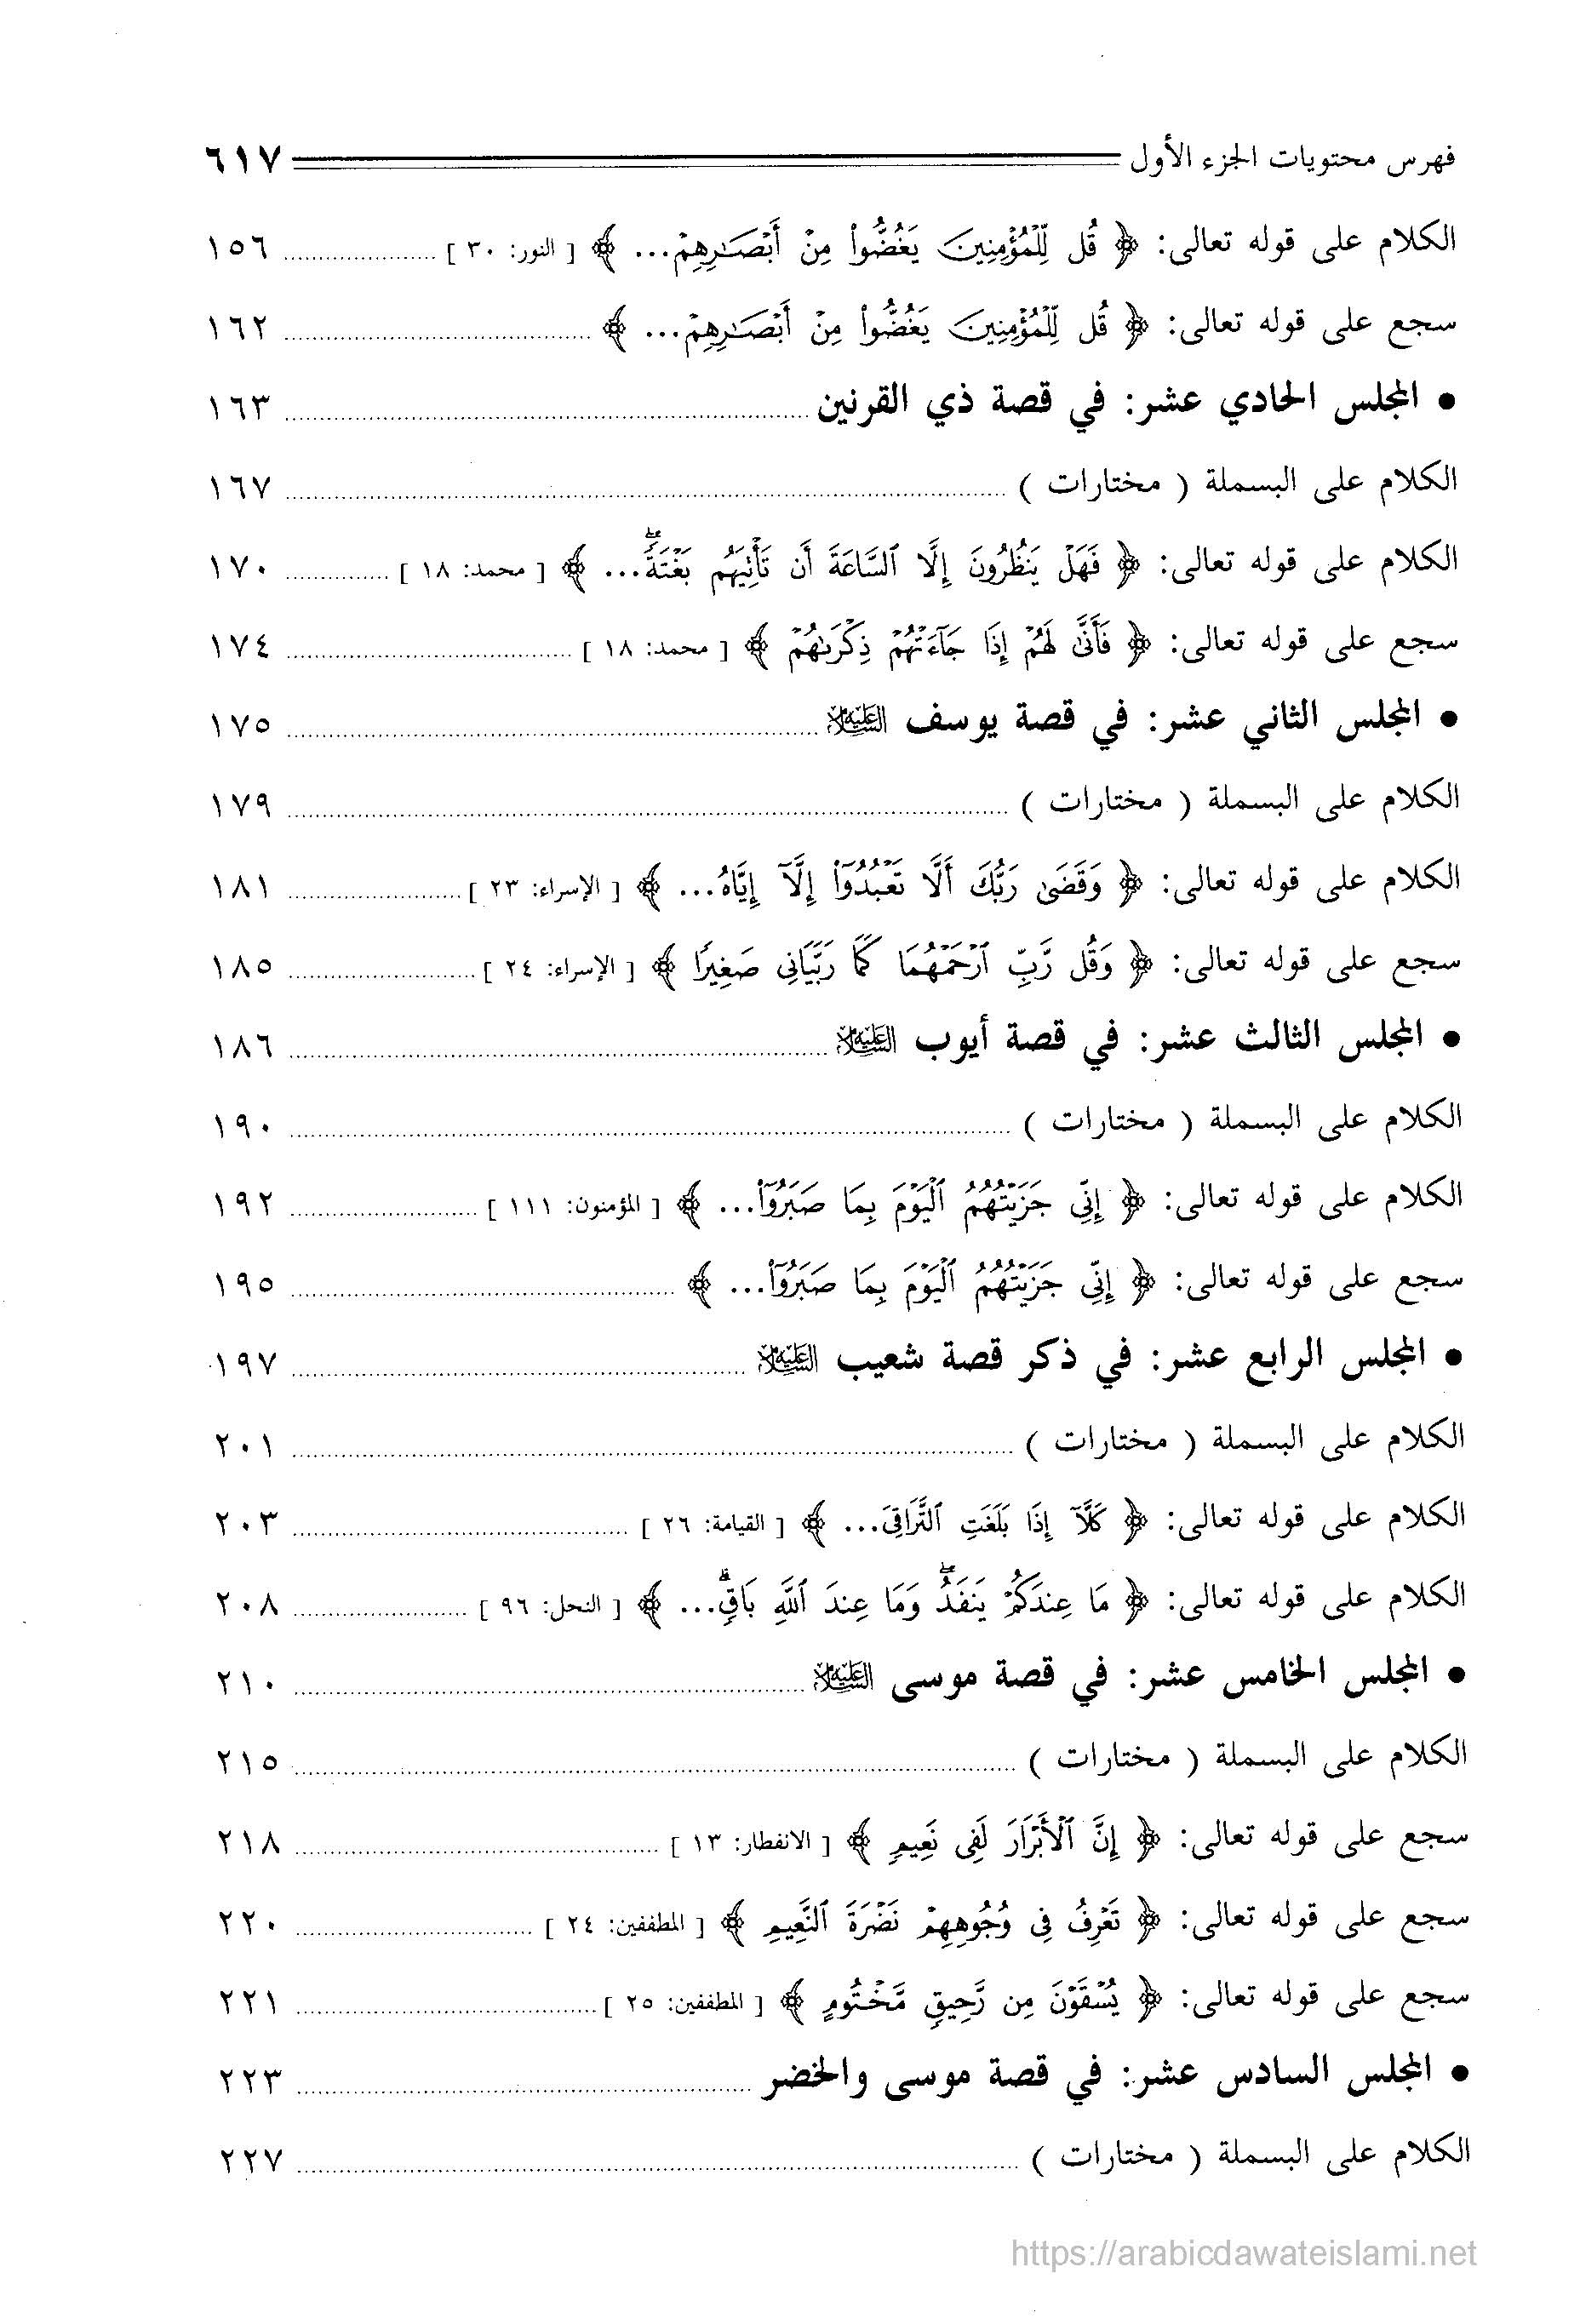 فهرس محتويات الجزء الأول ٦١٧
الكلام على قوله تعالى: ﴿ قُل لِّلْمُؤْمِنِينَ يَغُضُّوا۟ مِنْ أَبْصَـٰرِهِمْ... ﴾ [ النور: ٣٠ ] ١٥٦
سجع على قوله تعالى: ﴿ قُل لِّلْمُؤْمِنِينَ يَغُضُّوا۟ مِنْ أَبْصَـٰرِهِمْ... ﴾ ١٦٢
• المجلس الحادي عشر: في قصة ذي القرنين ١٦٣
الكلام على البسملة ( مختارات ) ١٦٧
الكلام على قوله تعالى: ﴿ فَهَلْ يَنظُرُونَ إِلَّا ٱلسَّاعَةَ أَن تَأْتِيَهُم بَغْتَةً ۖ... ﴾ [ محمد: ١٨ ] ١٧٠
سجع على قوله تعالى: ﴿ فَأَنَّىٰ لَهُمْ إِذَا جَآءَتْهُمْ ذِكْرَىٰهُمْ ﴾ [ محمد: ١٨ ] ١٧٤
• المجلس الثاني عشر: في قصة يوسف عليه السلام ١٧٥
الكلام على البسملة ( مختارات ) ١٧٩
الكلام على قوله تعالى: ﴿ وَقَضَىٰ رَبُّكَ أَلَّا تَعْبُدُوٓا۟ إِلَّآ إِيَّاهُ... ﴾ [ الإسراء: ٢٣ ] ١٨١
سجع على قوله تعالى: ﴿ وَقُل رَّبِّ ٱرْحَمْهُمَا كَمَا رَبَّيَانِى صَغِيرًا ﴾ [ الإسراء: ٢٤ ] ١٨٥
• المجلس الثالث عشر: في قصة أيوب عليه السلام ١٨٦
الكلام على البسملة ( مختارات ) ١٩٠
الكلام على قوله تعالى: ﴿ إِنِّى جَزَيْتُهُمُ ٱلْيَوْمَ بِمَا صَبَرُوٓا۟... ﴾ [ المؤمنون: ١١١ ] ١٩٢
سجع على قوله تعالى: ﴿ إِنِّى جَزَيْتُهُمُ ٱلْيَوْمَ بِمَا صَبَرُوٓا۟... ﴾ ١٩٥
• المجلس الرابع عشر: في ذكر قصة شعيب عليه السلام ١٩٧
الكلام على البسملة ( مختارات ) ٢٠١
الكلام على قوله تعالى: ﴿ كَلَّآ إِذَا بَلَغَتِ ٱلتَّرَاقِىَ... ﴾ [ القيامة: ٢٦ ] ٢٠٣
الكلام على قوله تعالى: ﴿ مَا عِندَكُمْ يَنفَدُ ۖ وَمَا عِندَ ٱللَّهِ بَاقٍ ۗ... ﴾ [ النحل: ٩٦ ] ٢٠٨
• المجلس الخامس عشر: في قصة موسى عليه السلام ٢١٠
الكلام على البسملة ( مختارات ) ٢١٥
سجع على قوله تعالى: ﴿ إِنَّ ٱلْأَبْرَارَ لَفِى نَعِيمٍ ﴾ [ الانفطار: ١٣ ] ٢١٨
سجع على قوله تعالى: ﴿ تَعْرِفُ فِى وُجُوهِهِمْ نَضْرَةَ ٱلنَّعِيمِ ﴾ [ المطففين: ٢٤ ] ٢٢٠
سجع على قوله تعالى: ﴿ يُسْقَوْنَ مِن رَّحِيقٍ مَّخْتُومٍ ﴾ [ المطففين: ٢٥ ] ٢٢١
• المجلس السادس عشر: في قصة موسى والخضر ٢٢٣
الكلام على البسملة ( مختارات ) ٢٢٧
https://arabicdawateislami.net